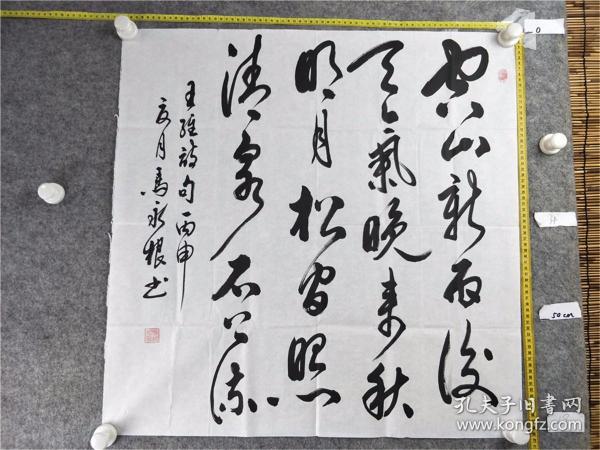 空山新雨後
天氣晚来秋
明月松间照
清泉石上流
王維詩句丙申
夏月馬永根书
0
50cm
孔夫子旧書网
www.kongfz.com